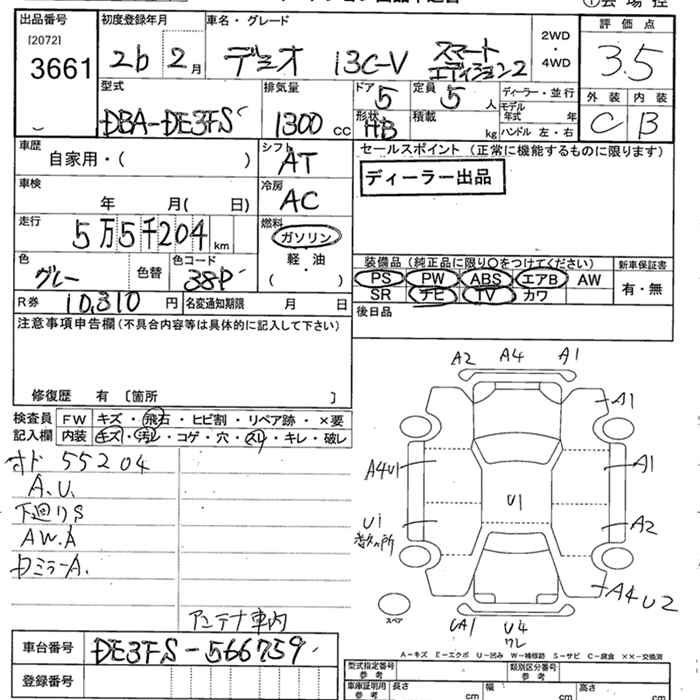 出品番号 初度登録年月 車名・グレード ①会場控
[2072]
3661
26 2月 デミオ 13C-V スマート エディション2
2WD・4WD
評価点
3.5
外装 内装
C B
型式 排気量 ドア 定員 ディーラー・並行
DBA-DE3FS 1300cc 5 5人
形状 積載 モデル年式 年
HB kg ハンドル 左・右
車歴 シフト セールスポイント (正常に機能するものに限ります)
自家用・( ) AT
ディーラー出品
車検 冷房
年 月( 日) AC
走行 燃料
5万5千204km ガソリン
軽・油
( )
色 色替 色コード
グレー 38P
装備品(純正品に限り○をつけてください) 新車保証書
PS PW ABS エアB AW 有・無
SR ナビ TV カワ
R券 10,310円 名変通知期限 月 日
後日品
注意事項申告欄(不具合内容等は具体的に記入して下さい)
修復歴 有 〔箇所 〕
検査員 FW キズ・飛石・ヒビ割・リペア跡・×要
記入欄 内装 キズ・汚レ・コゲ・穴・スレ・キレ・破レ
オド 55204
A.U.
下廻りS
AW.A
Dミラー A.
アンテナ車内
A2 A4 A1
A1
A4U1 A1
U1
U1 A2
A4U2
スペア
UA1 U4
ワレ
A-キズ E-エクボ U-凹み W-補修跡 S-サビ C-腐食 ××-交換済
車台番号 DE3FS-566739
登録番号
型式指定番号 参考 類別区分番号 参考
車庫証明用 参考 長さ cm 幅 cm 高さ cm